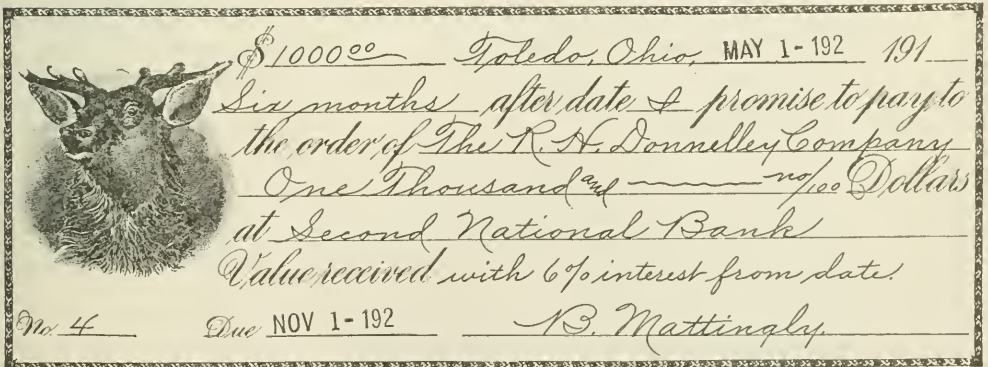 $1000 00 Toledo, Ohio, MAY 1-192 191
Six months after date I promise to pay to
the order of The R. H. Donnelley Company
One Thousand and no/100 Dollars
at Second National Bank
Value received with 6% interest from date.
No. 4 Due NOV 1-192 B. Mattingly.